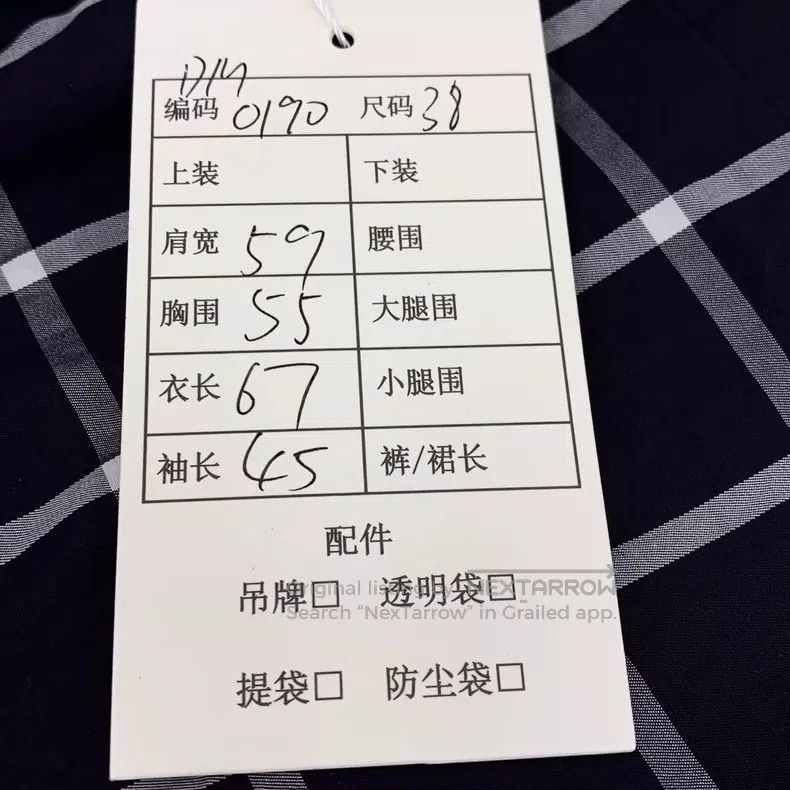 编码 0190 尺码 38
上装 下装
肩宽 59 腰围
胸围 55 大腿围
衣长 67 小腿围
袖长 45 裤/裙长
配件
吊牌□ 透明袋□
Original listing by NEXTARROW
Search “NexTarrow” in Grailed app.
提袋□ 防尘袋□